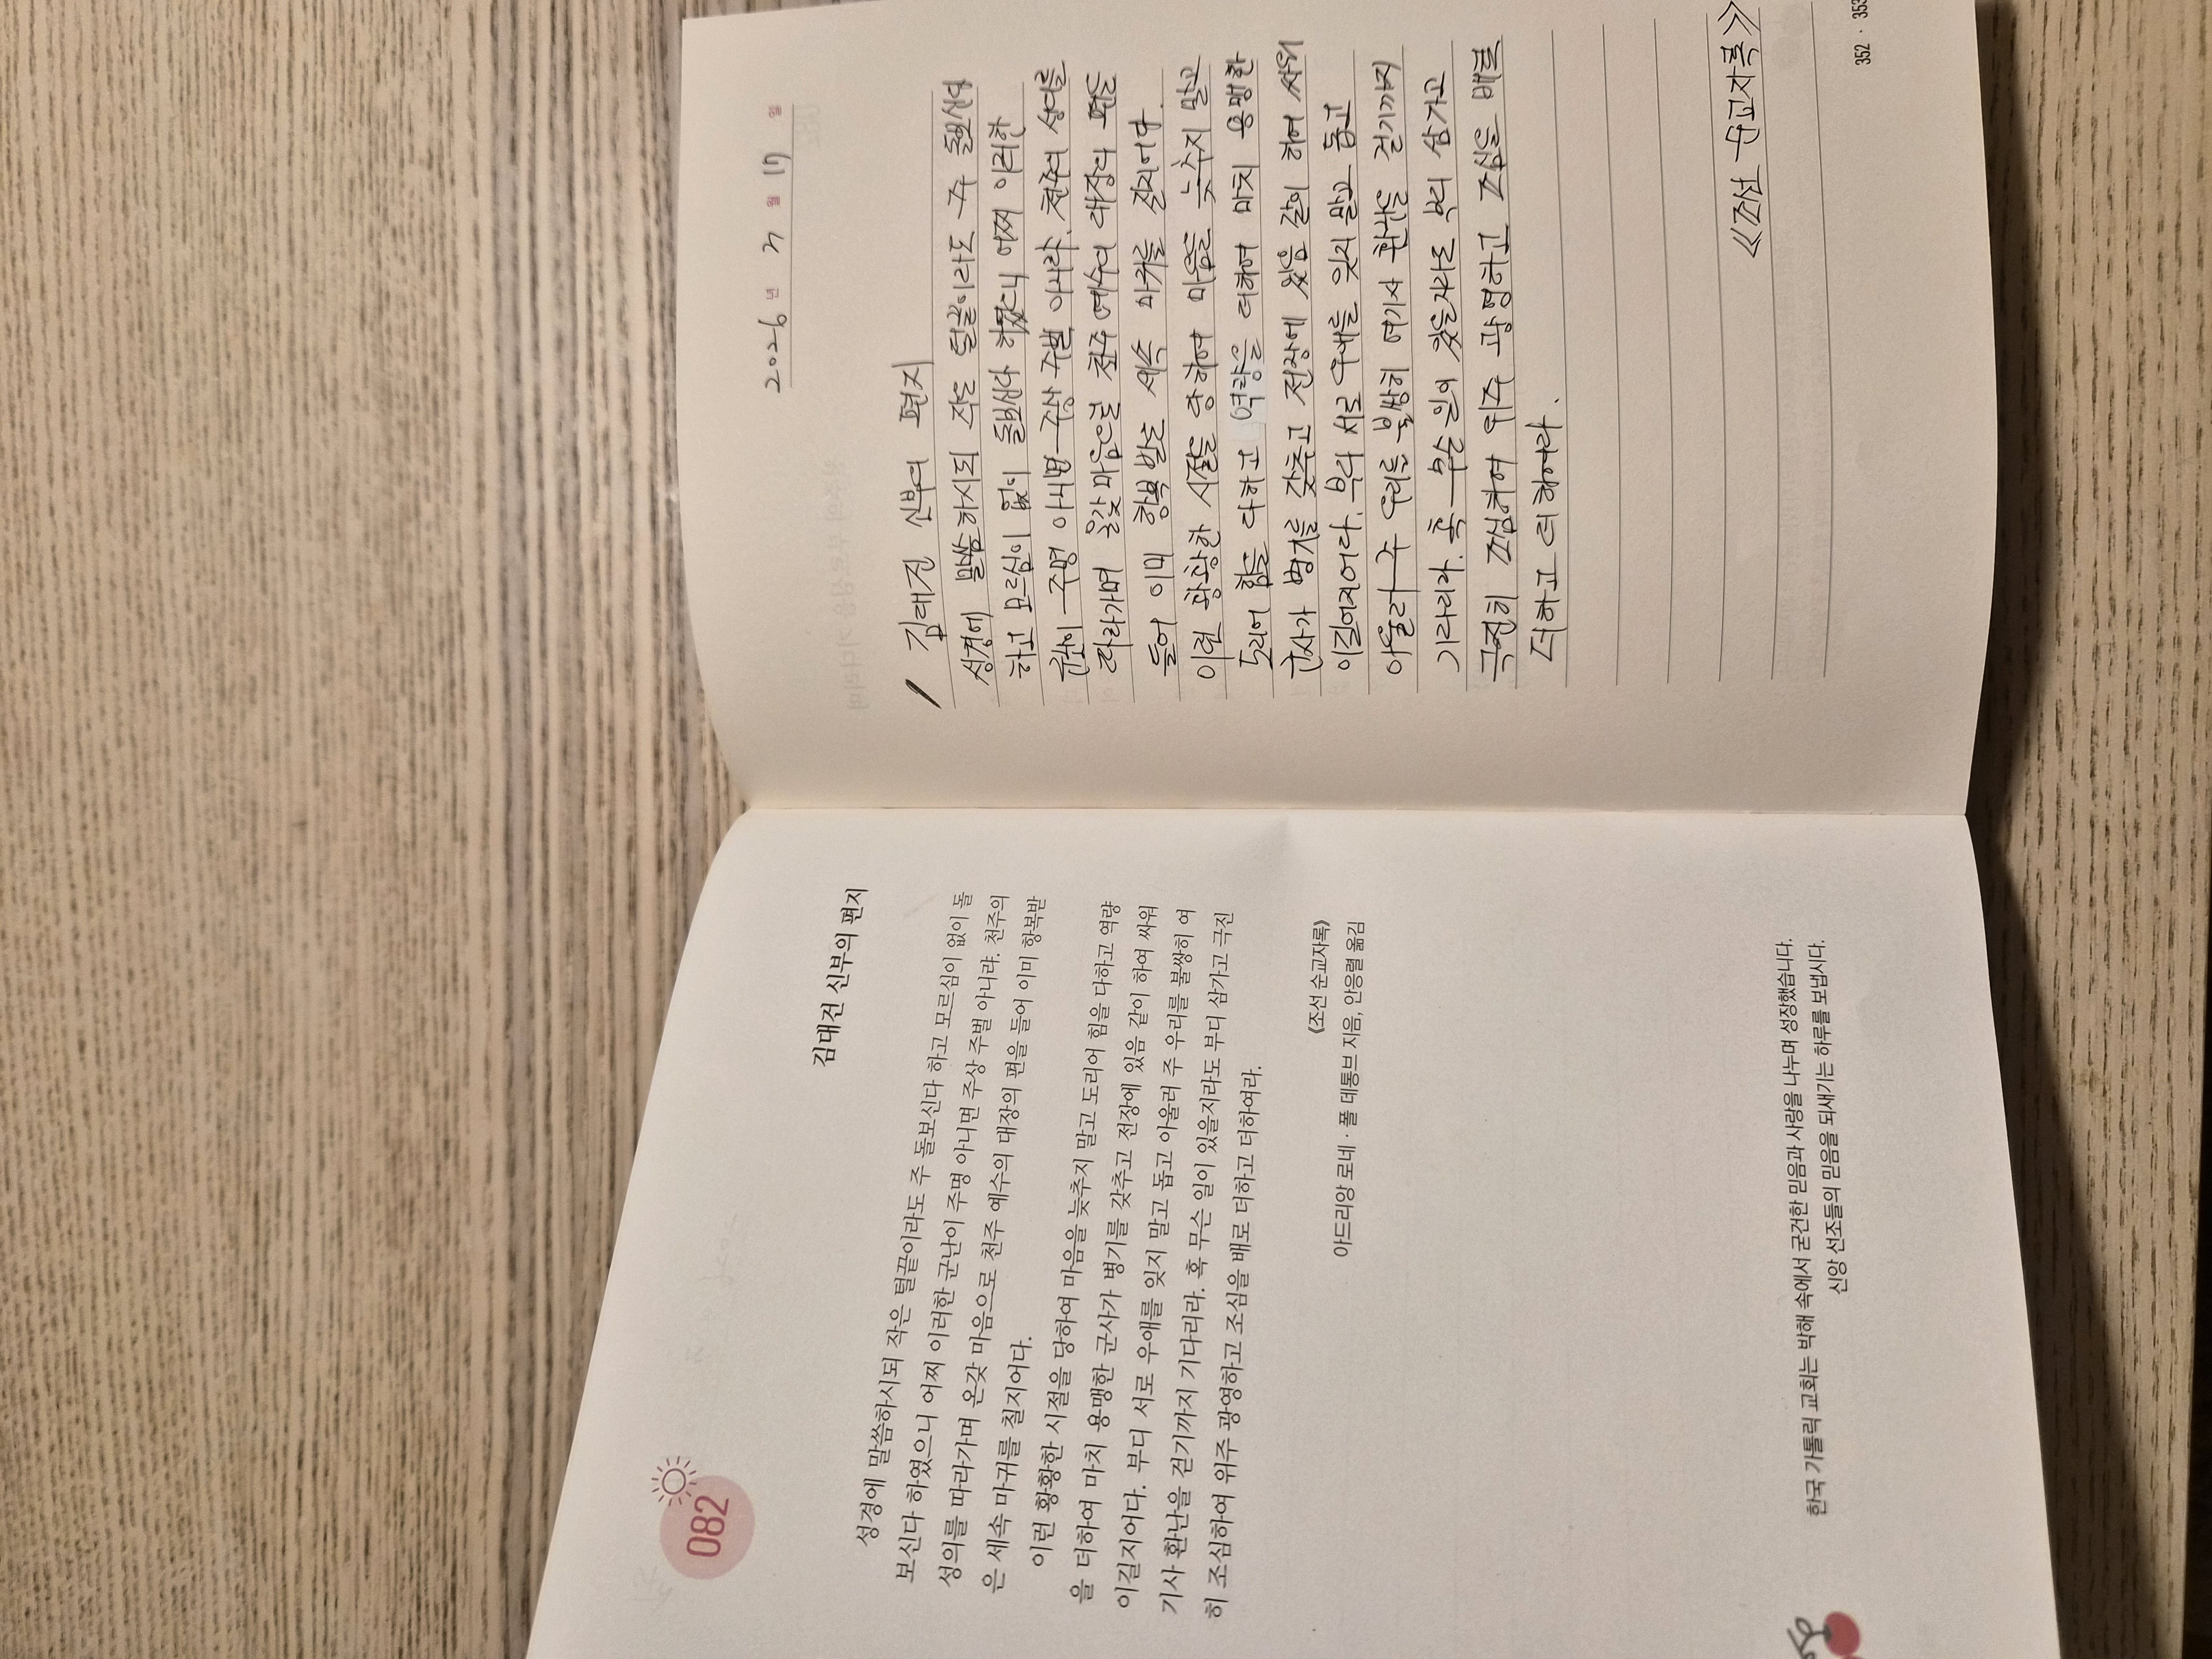 082
김대건 신부의 편지
성경에 말씀하시되 작은 털끝이라도 주 돌보신다 하고 모르심이 없이 돌
보신다 하였으니 어찌 이러한 군난이 주명 아니면 주상 주벌 아니랴. 천주의
성의를 따라가며 온갖 마음으로 천주 예수의 대장의 편을 들어 이미 항복받
은 세속 마귀를 칠지어다.
이런 황황한 시절을 당하여 마음을 늦추지 말고 도리어 힘을 다하고 역량
을 더하여 마치 용맹한 군사가 병기를 갖추고 전장에 있음 같이 하여 싸워
이길지어다. 부디 서로 우애를 잊지 말고 돕고 아울러 주 우리를 불쌍히 여
기사 환난을 걷기까지 기다리라. 혹 무슨 일이 있을지라도 부디 삼가고 극진
히 조심하여 위주 광영하고 조심을 배로 더하고 더하여라.
《조선 순교자록》
아드리앙 로네 · 폴 데통브 지음, 안응렬 옮김
한국 가톨릭 교회는 박해 속에서 굳건한 믿음과 사랑을 나누며 성장했습니다.
신앙 선조들의 믿음을 되새기는 하루를 보냅시다.
2026 년 2 월 17 일
김대건 신부의 편지
성경에 말씀하시되 작은 털끝이라도 주 돌보신다
하고 모르심이 없이 돌보신다 하였으니 어찌 이러한
군난이 주명 아니면 주상 주벌 아니랴. 천주의 성의를
따라가며 온갖 마음으로 천주 예수의 대장의 편을
들어 이미 항복 받은 세속 마귀를 칠지어다.
이런 황황한 시절을 당하여 마음을 늦추지 말고
도리어 힘을 다하고 역량을 더하여 마치 용맹한
군사가 병기를 갖추고 전장에 있음 같이 하여 싸워
이길지어다. 부디 서로 우애를 잊지 말고 돕고
아울러 주 우리를 불쌍히 여기사 환난을 걷기까지
기다리라. 혹 무슨 일이 있을지라도 부디 삼가고
극진히 조심하여 위주 광영하고 조심을 배로
더하고 더하여라.
《조선 순교자록》
352 · 353